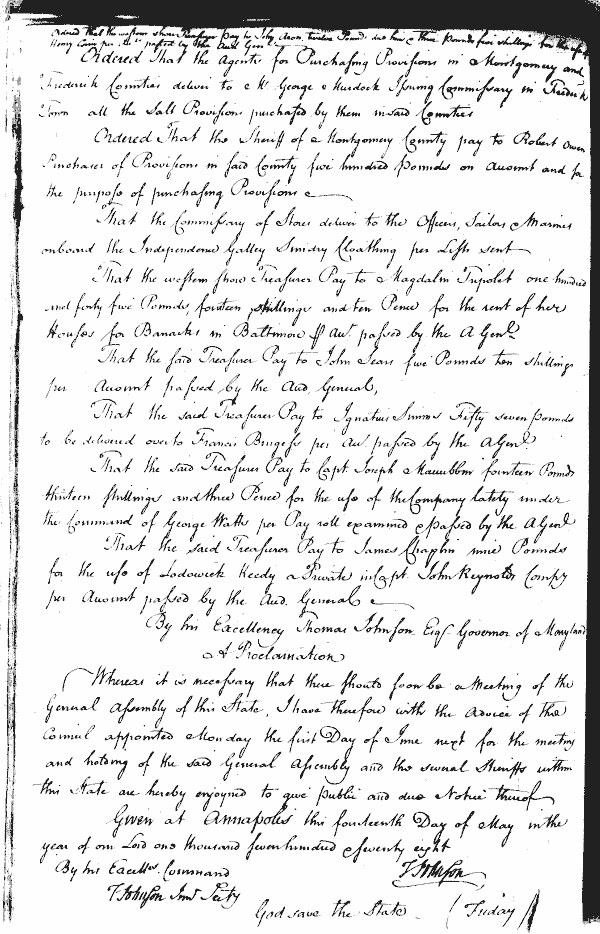 Ordered that the western shore Treasurer pay to John twelve Pounds due him & three Pounds five shillings for the use of
Henry per passed by the Aud Genl
Ordered That the Agents for Purchasing Provisions in Montgomery and
Frederick Counties deliver to Mr George Murdock Issuing Commissary in Frederick
Town all the Salt Provisions purchased by them in said Counties
Ordered That the Sheriff of Montgomery County pay to Robert Owen
Purchaser of Provisions in said County five hundred Pounds on Account and for
the purpose of purchasing Provisions
That the Commissary of Stores deliver to the Officers, Sailors & Marines
onboard the Independence Galley Sundry Cloathing per Lists sent
That the western shore Treasurer Pay to Magdalin Tripolet one hundred
and forty five Pounds, fourteen shillings and ten Pence for the rent of her
Houses for Barracks in Baltimore pr Acct passed by the A Genl
That the said Treasurer Pay to John Sears five Pounds ten shillings
per Account passed by the Aud General,
That the said Treasurer Pay to Ignatius Simms Fifty seven pounds
to be delivered over to Francis Burgess per Acct passed by the A Genl
That the said Treasurer Pay to Capt Joseph fourteen Pounds
thirteen shillings and three Pence for the use of the Company lately under
the Command of George Watts per Pay roll examined & passed by the A Genl
That the said Treasurer Pay to James Chaplin nine Pounds
for the use of Lodowick Heedy a Private in Capt. John Reynolds Compy
per Account passed by the Aud. General
By his Excellency Thomas Johnson Esqr. Governor of Maryland
A Proclamation
Whereas it is necessary that there should soon be a Meeting of the
General Assembly of this State, I have therefore with the Advice of the
Council appointed Monday the first Day of June next for the meeting
and holding of the said General Assembly and the several Sheriffs within
this State are hereby enjoyned to give public and due Notice thereof
Given at Annapolis this fourteenth Day of May in the
year of our Lord one thousand seven hundred & seventy eight
By his Excellys. Command
Th Johnson
T Johnson Junr Secty
God save the State
(Friday)